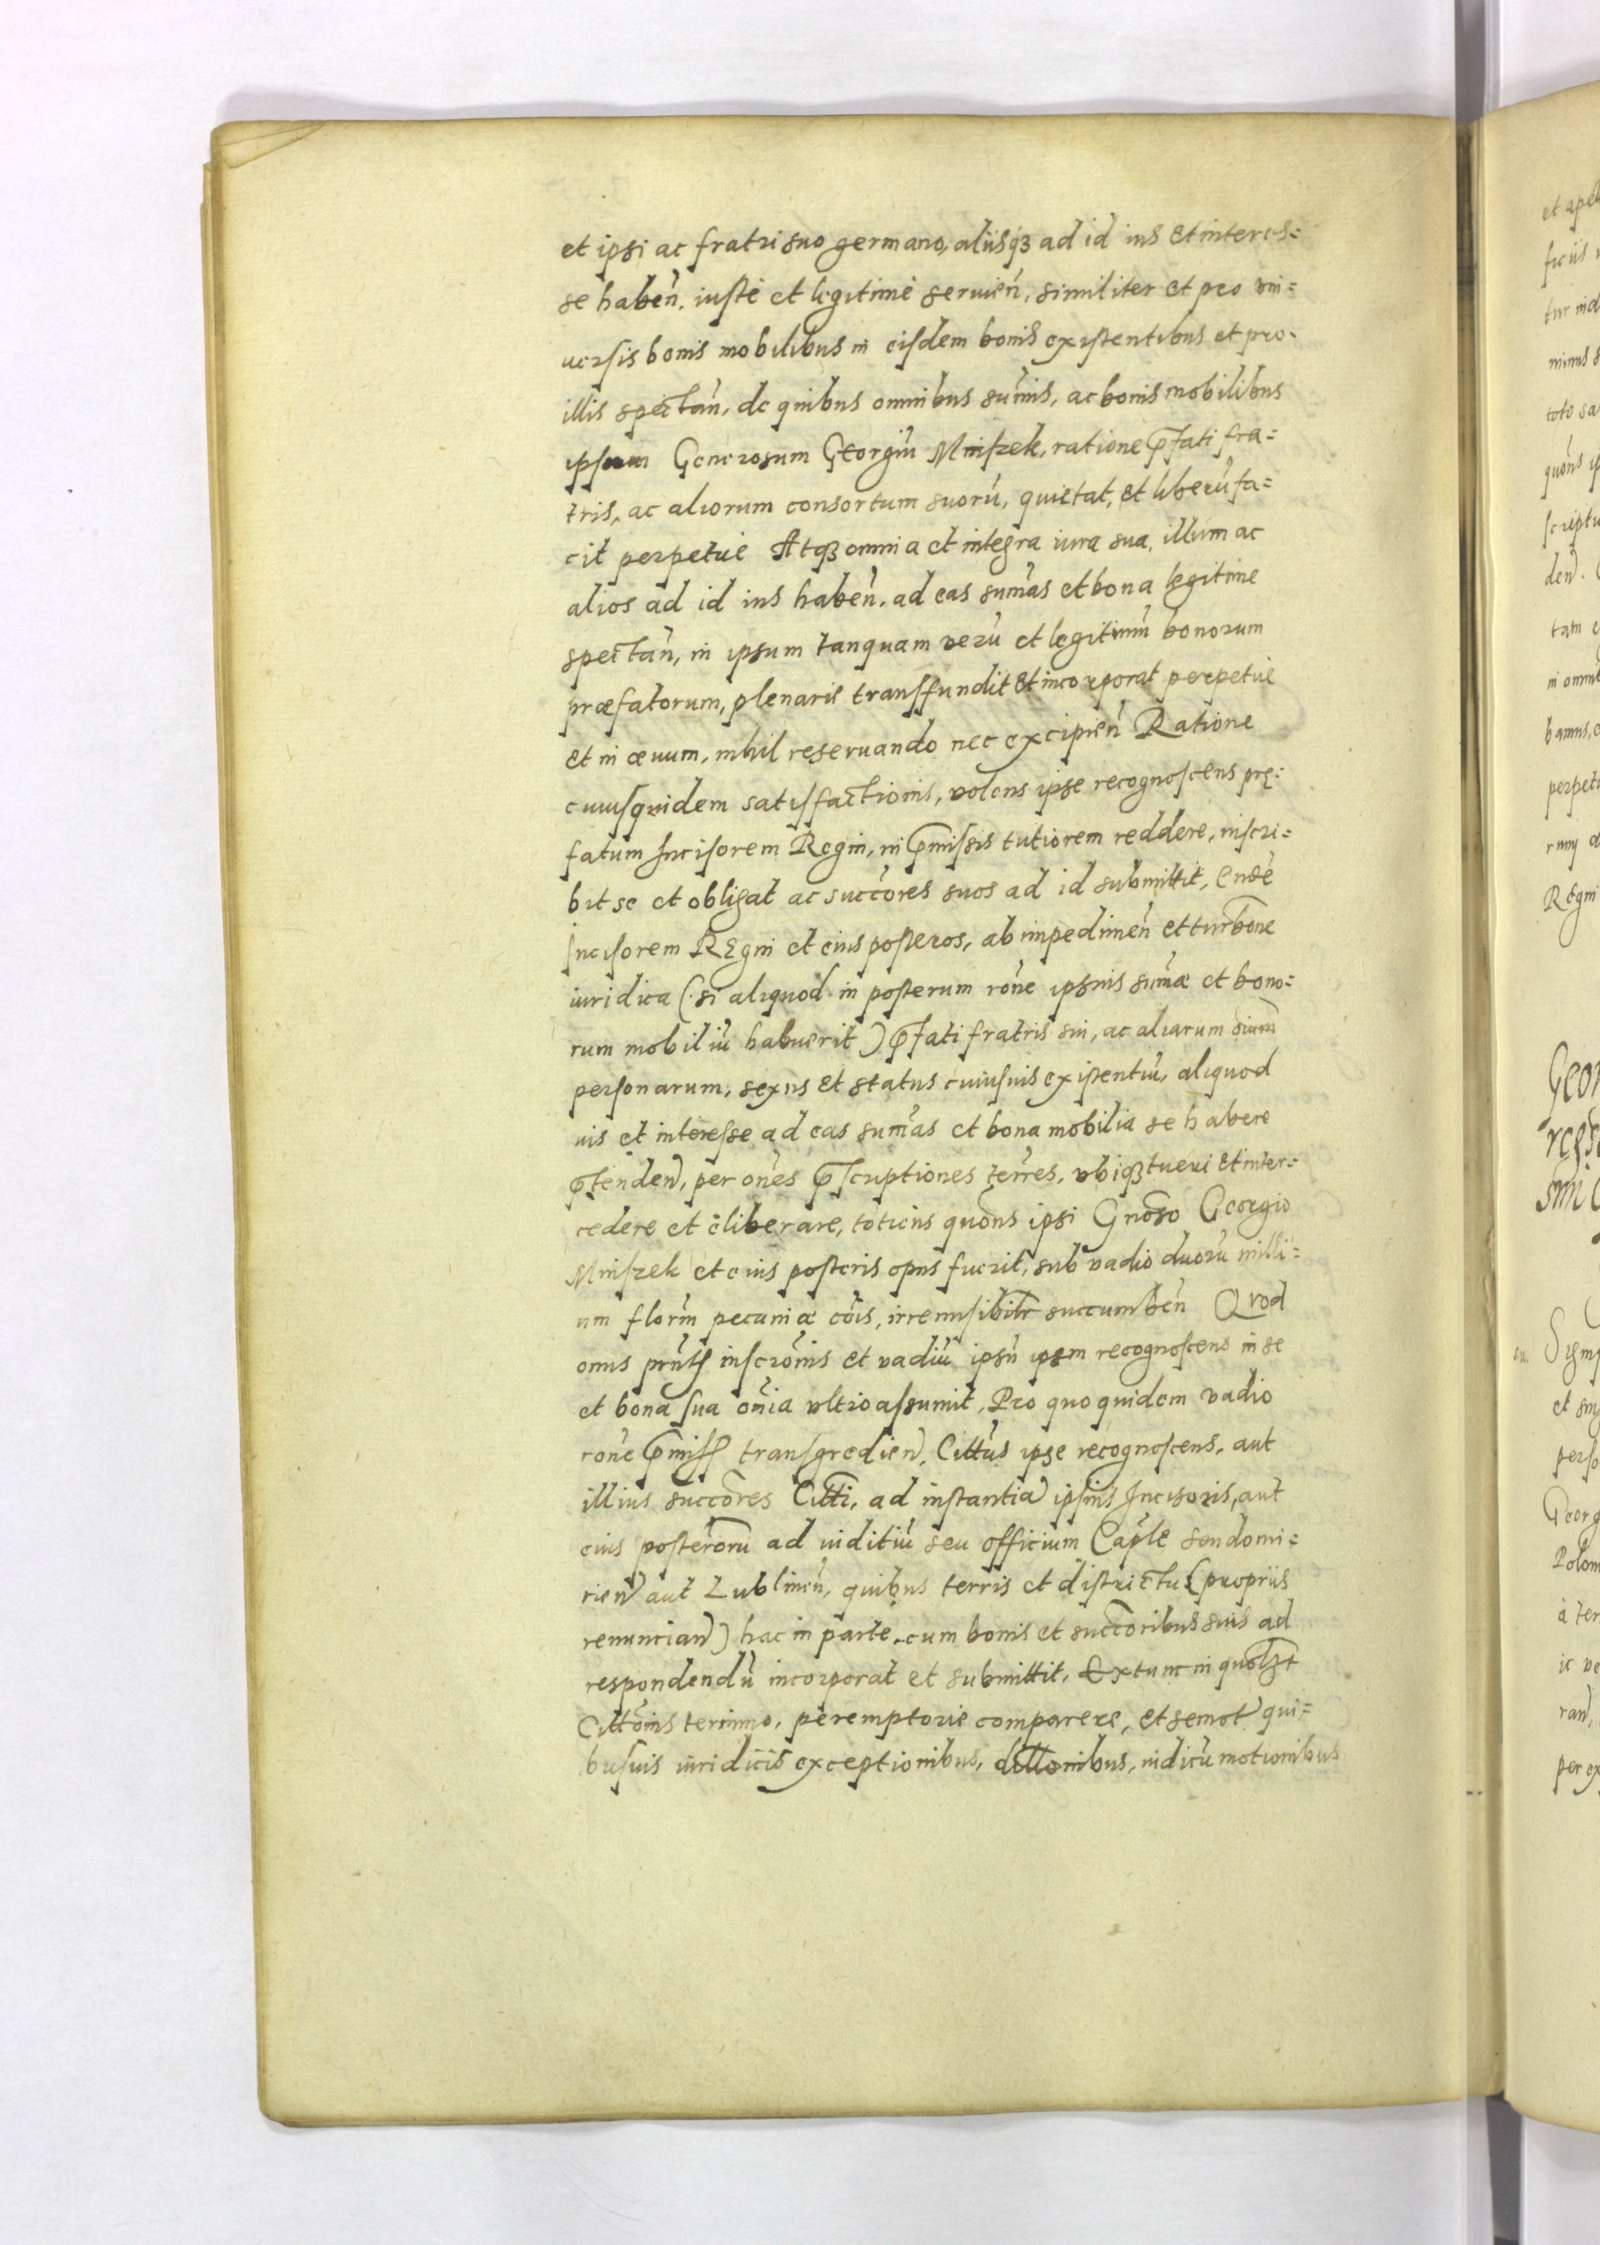 et ipsi ac fratri suo germano, aliisq3 ad id ius et interes=
se haben̄. iuste et legitime seruien̄, similiter et pro vni=
uersis bonis mobilibus in eisdem bonis existentibus et pro
illis spectan̄, de quibus omnibus sum̄is, ac bonis mobilibus
ipsum Generosum Georgiū Mniszek, ratione p̄fati fra=
tris, ac aliorum consortum suorū, quietat, et liberū fa=
cit perpetue Atq3 omnia et integra iura sua, illum ac
alios ad id ius haben̄. ad eas sum̄as et bona legitime
spectan̄, in ipsum tanquam verū et legitimū bonorum
præfatorum, plenarie transfundit et incorporat perpetue
et in æuum, nihil reseruando nec excipien̄ Ratione
cuiusquidem satisfactionis, volens ipse recognoscens præ=
fatum Incisorem Regni, in p̄missis tutiorem reddere, inscri=
bit se et obligat ac succ̄ores suos ad id submittit, Eundē
Incisorem Regni et eius posteros, ab impedimen̄ et turb̄one
iuridica (si aliquod in posterum rōne ipsius sum̄æ et bono=
rum mobiliū habuerit) p̄fati fratris sui, ac aliarum ōium
personarum, sexus et status cuiusuis existentiū, aliquod
ius et interesse ad eas sum̄as et bona mobilia se habere
p̄tenden̄, per on̄es p̄scriptiones terr̄es, vbiq3 tueri et inter=
cedere et eliberare, totiens quōns ipsi Gn̄oso Georgio
Mniszek et eius posteris opus fuerit, sub vadio duorū milli=
um flor̄m pecuniæ cōis, irremisibilr̄ succumben̄ Quod
onus prn̄tis inscrōnis et vadiū ipsū ipsem recognoscens in se
et bona sua om̄ia vltro assumit, Pro quo quidem vadio
rōne p̄miss transgredien̄, Citt̄us ipse recognoscens, aut
illius succ̄ores Citt̄i, ad instantiā ipsius Incisoris, aut
eius posterorū ad iuditiū seu officium Capl̄e Sendomi=
rien̄ aut Lublinen̄, quibus terris et districtu (propriis
renuncian̄) hac in parte, cum bonis et succ̄oribus suis ad
respondendū incorporat et submittit, Extunc in quol3t
Citt̄onis termino, peremptorie comparere, et semot̄ qui=
busuis iuridicis exceptionibus, dill̄onibus, iudicū motionibus